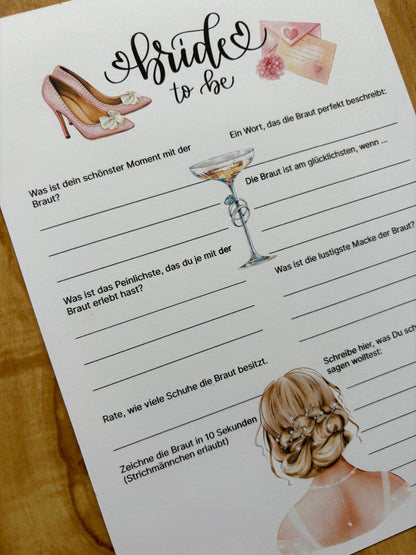 bride
to be
Was ist dein schönster Moment mit der
Braut?
Was ist das Peinlichste, das du je mit der
Braut erlebt hast?
Rate, wie viele Schuhe die Braut besitzt.
Zeichne die Braut in 10 Sekunden
(Strichmännchen erlaubt)
Ein Wort, das die Braut perfekt beschreibt:
Die Braut ist am glücklichsten, wenn ...
Was ist die lustigste Macke der Braut?
Schreibe hier, was Du sch
sagen wolltest: